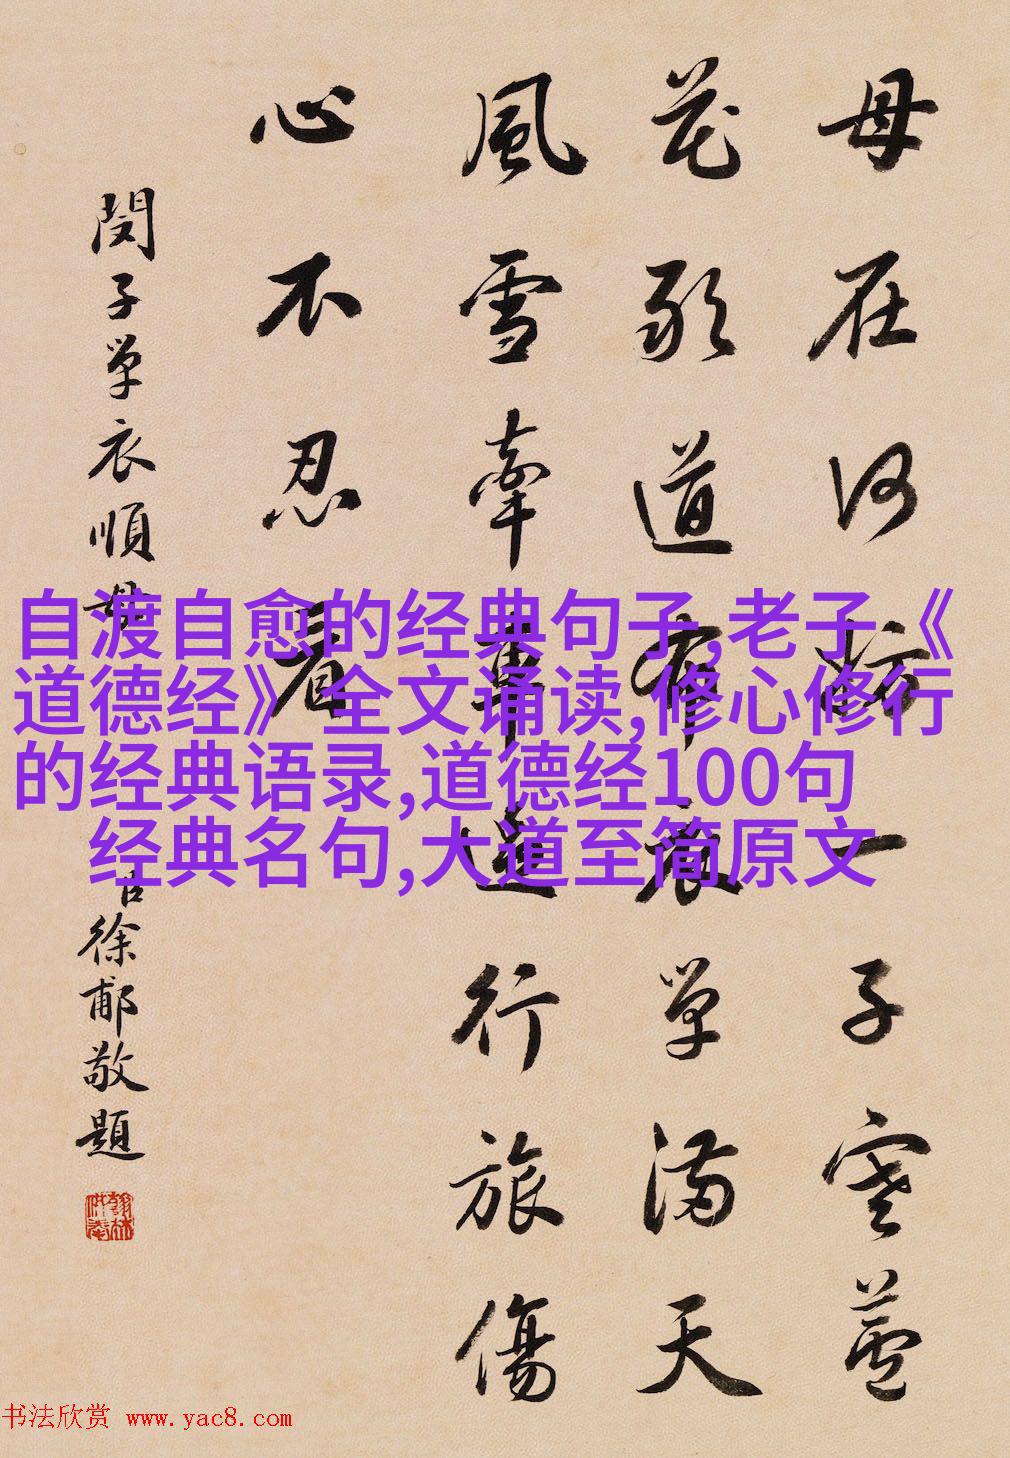 母在何妨一子寒蘆
花敢道有衣單滿天
風雪牽車遠行旅傷
心不忍看
閔子單衣順母 臣徐郙敬題
翰林供奉
自渡自愈的经典句子,老子《
道德经》全文诵读,修心修行
的经典语录,道德经100句
经典名句,大道至简原文
书法欣赏 www.yac8.com